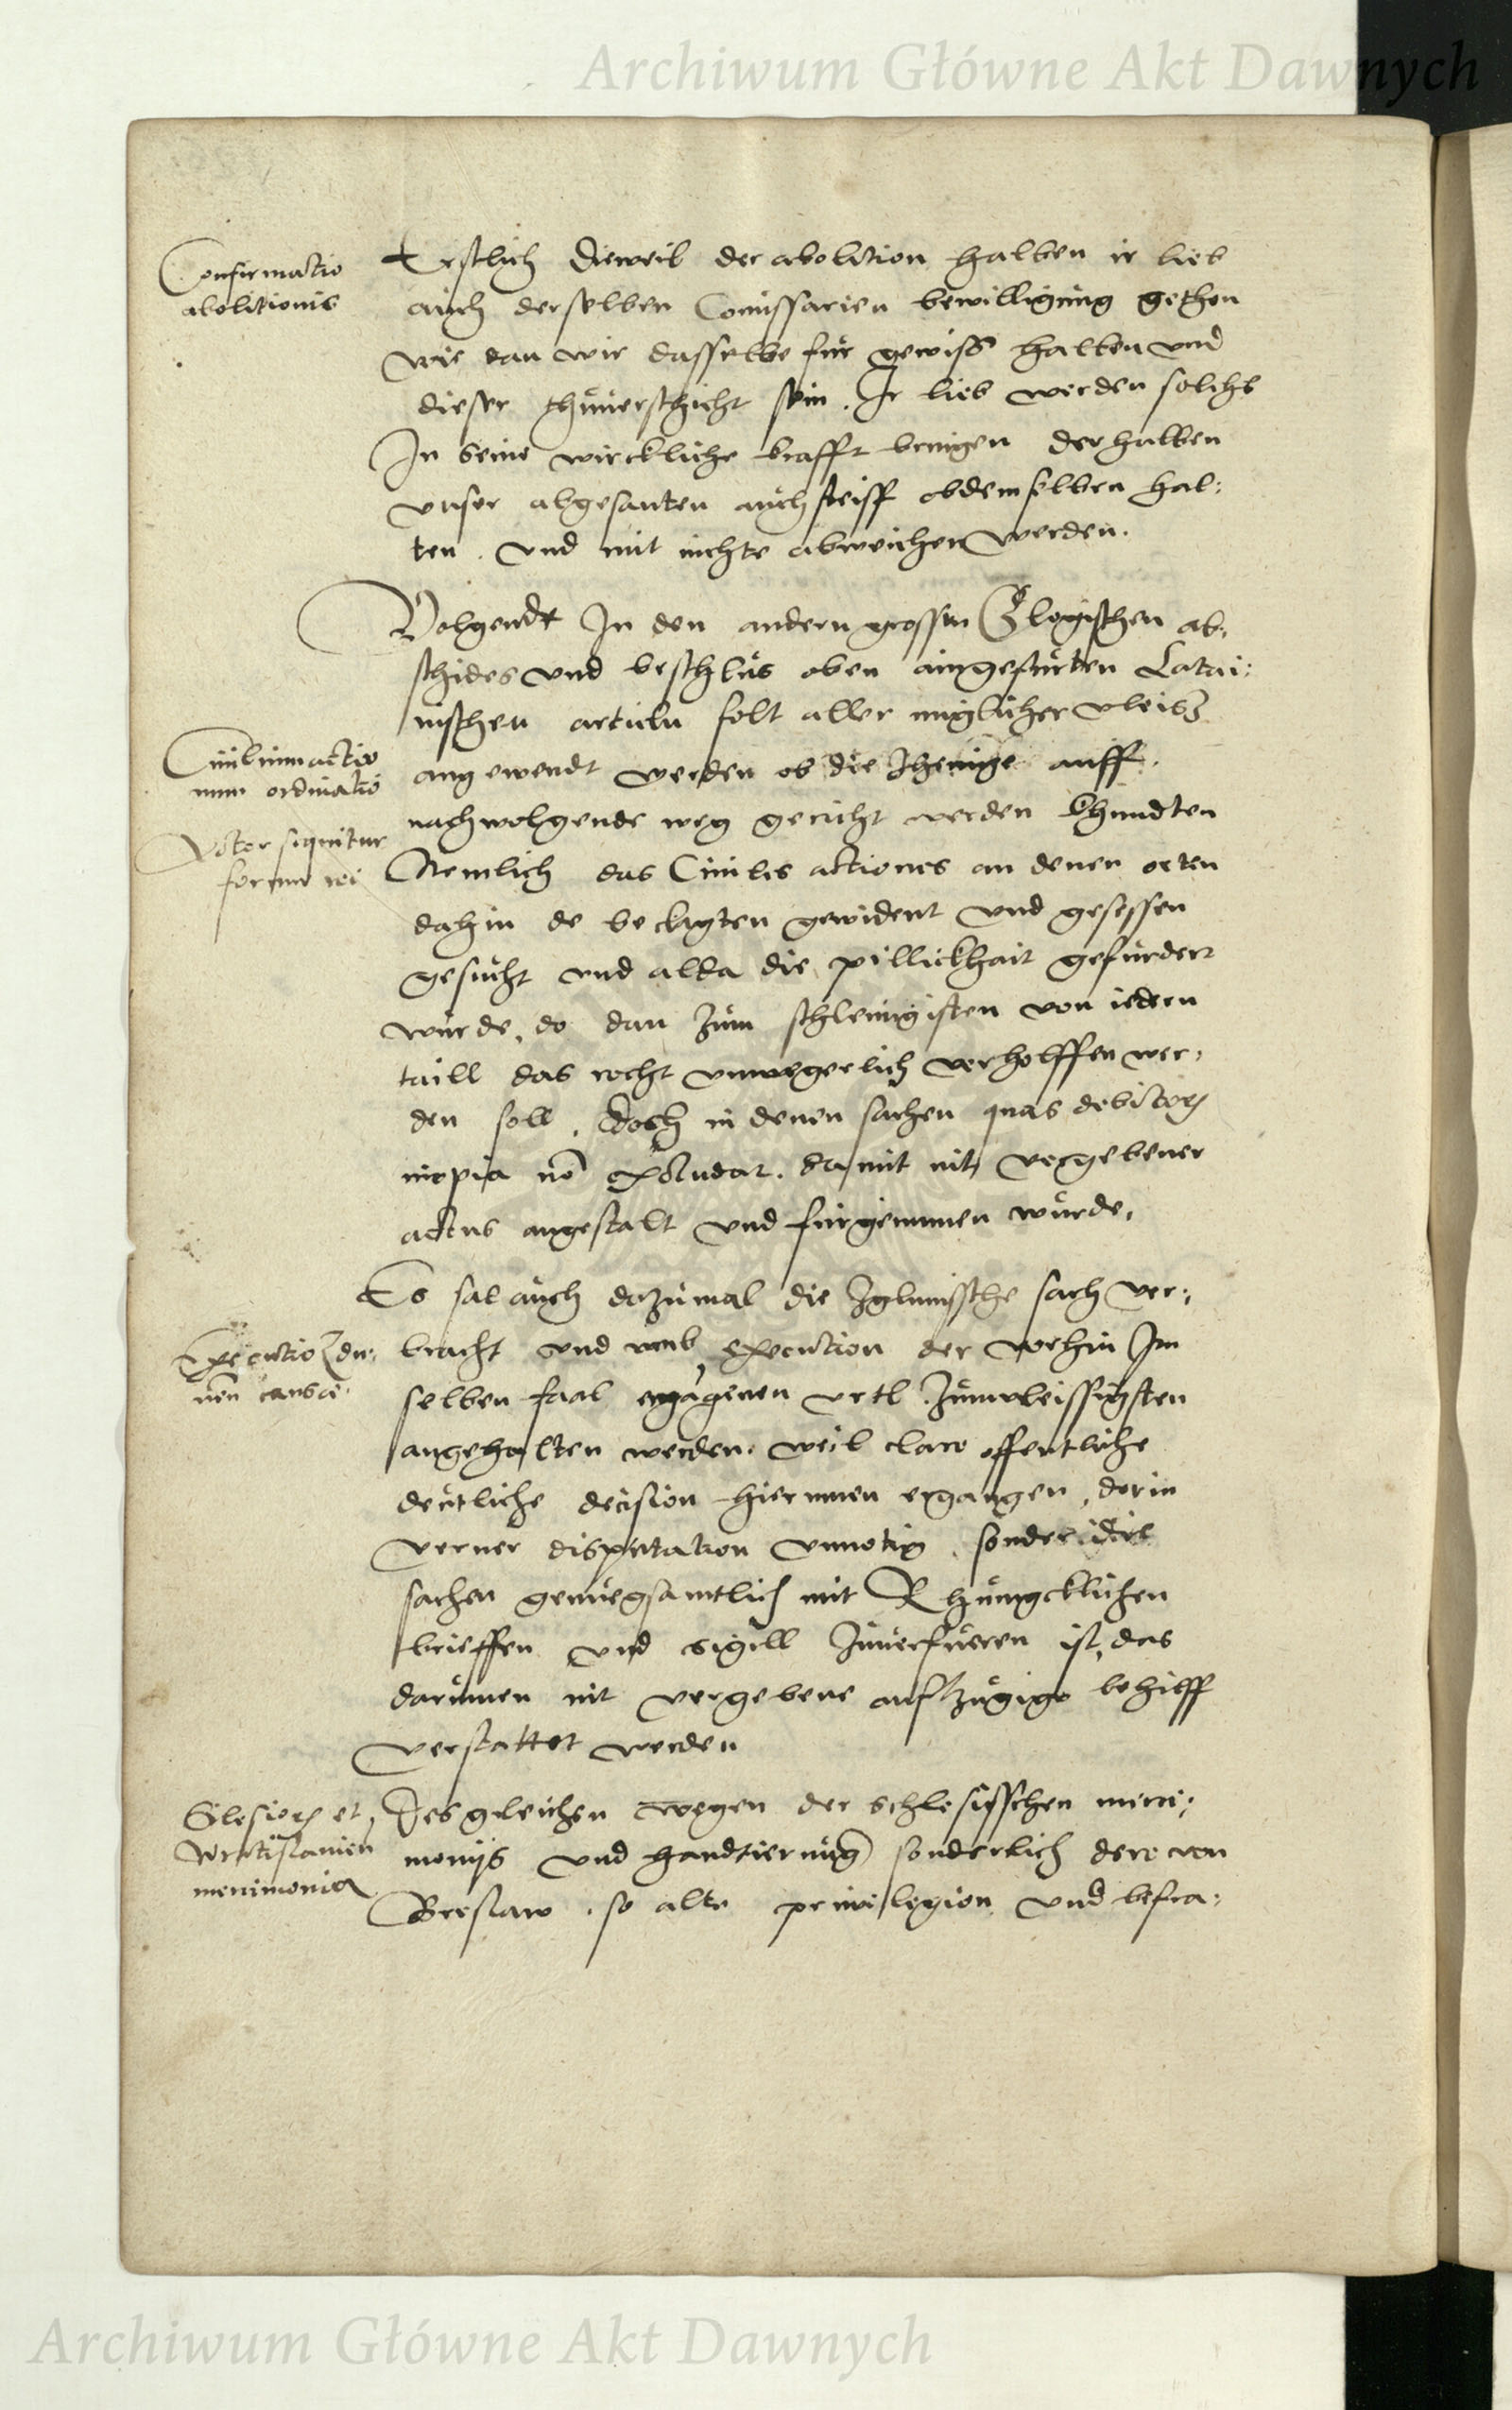 Archiwum Główne Akt Dawnych
Confirmatio
abolitionis
Erstlich dieweil der abolition halben ir lieb
auch derselben Comissarien bewilligung gethon
wie dan wir dasselbe für gewiss halten und
dieser zuuersicht sein. Ir lieb werden solchs
In seine wirckliche krafft bringen derhalben
unser abgesanten auch steiff ob demselben hal:
ten. und mit nichte abweichen werden.
Volgendt In den andern grossen Glogischen ab:
schides und beschlus oben eingefürten Latai:
nischen articuln solt aller muglicher vleis
Ciuilium actio
num ordinatio
angewendt werden ob die Ihenige auff
nachvolgende weg gericht werden khundten
Nemlich das Ciuiles actiones an denen orten
dahin de beclagten gewident und gesessen
gesucht und alda die pillickhait gefurdert
wurde, do dan zum schleinigisten von iedem
taill das recht unwegerlich verholffen wer:
den soll. doch in denen sachen quas debitoris
inopia nō excludat. damit nit vergebener
actus angestalt und furgenummen wurde.
Es sal auch dazumal die Iglauische sach ver:
Executio
causa
bracht und umb execution der vorhin Im
selben faal ergagenen urtl zum vleissigsten
angehalten werden. weil clare offentliche
deutliche decision hierinnen ergangen, dorin
verner disputation unnotig. sonder
sachen genuegsamtlich mit Khunigcklichen
brieffen und sigill zuuerfueren ist, das
darinnen nit vergebene auffzugige behilff
verstattet werden
Silesior et
Wratislauien
merimonia
Desgleichen wegen der schlesisschen meri:
monijs und handtierung sonderlich dere von
Breslaw. so alte priuilegion und befra:
Archiwum Główne Akt Dawnych